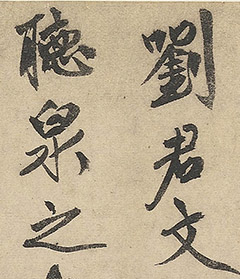 劉君文
聽泉之